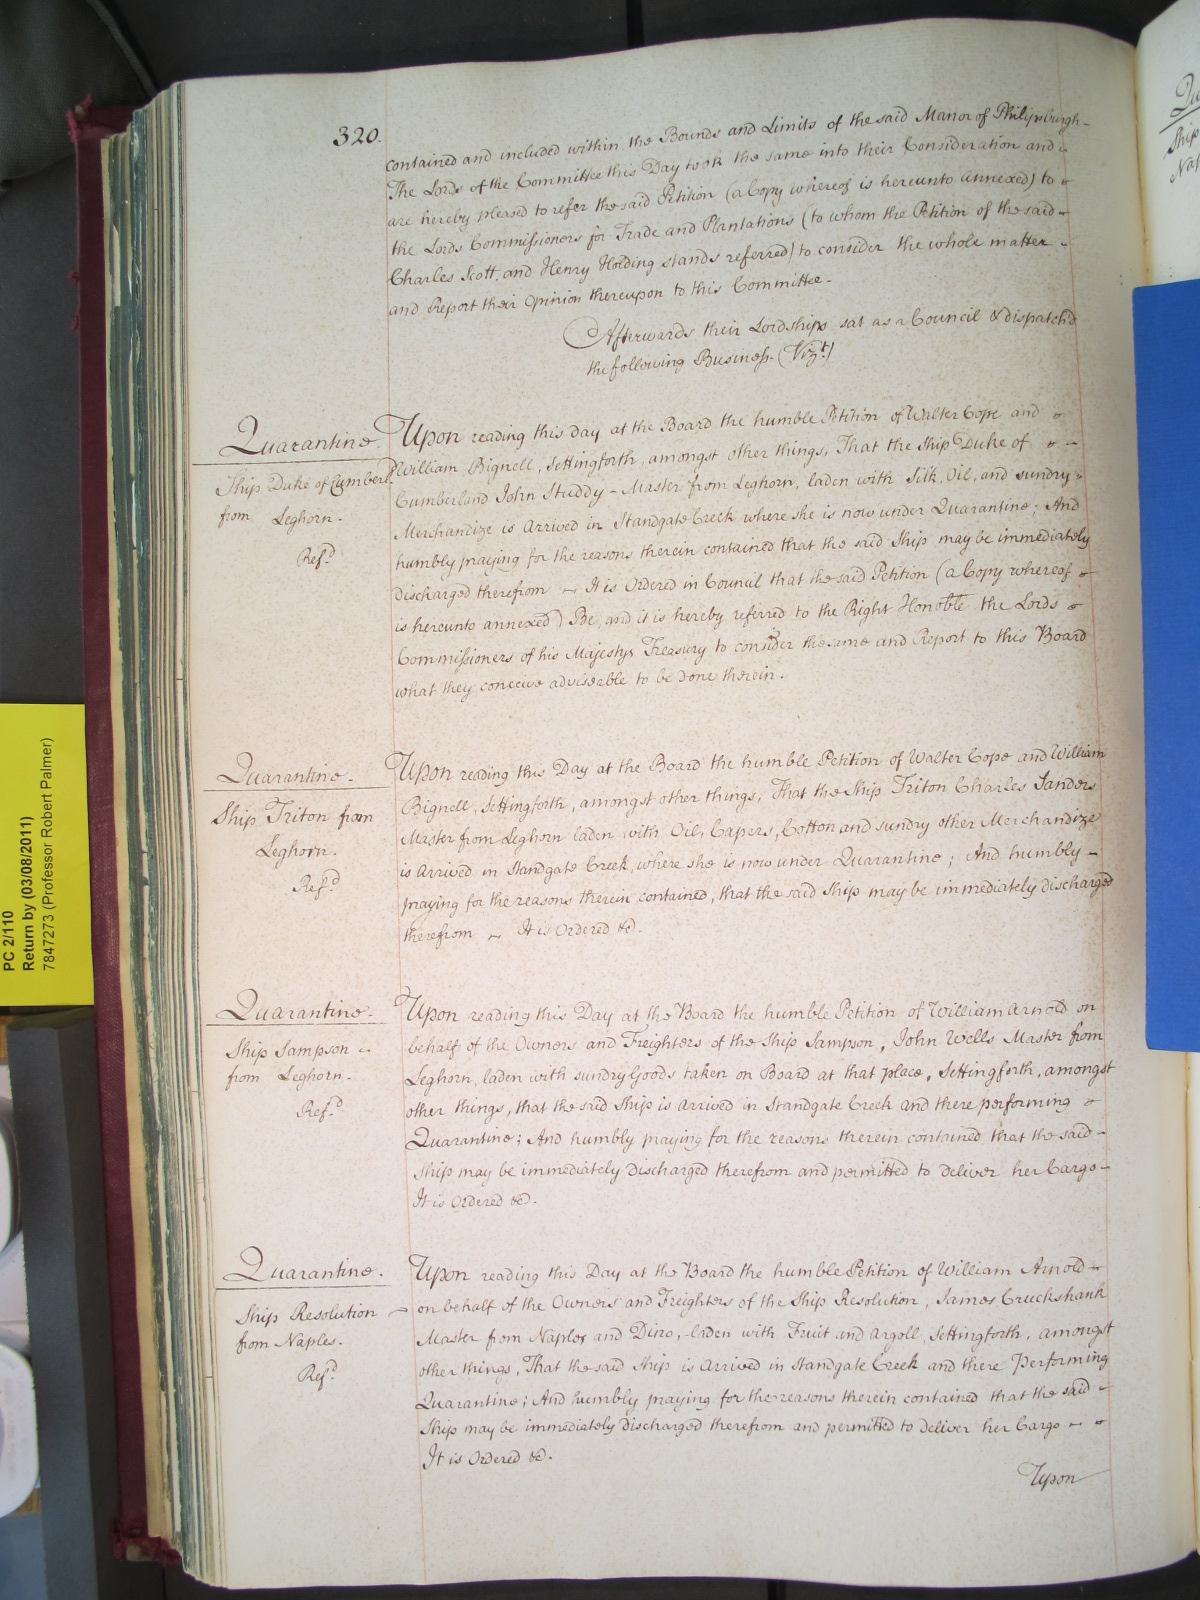 320.
contained and included within the Bounds and Limits of the said Manor of Philipsburgh -
The Lords of the Committee this Day took the same into their Consideration and
are hereby pleased to refer the said Petition (a Copy whereof is hereunto annexed) to
the Lords Commissioners for Trade and Plantations (to whom the Petition of the said
Charles Scott and Henry Holding stands referred) to consider the whole matter -
and Report their Opinion thereupon to this Committee.
Afterwards their Lordships sat as a Council & dispatch'd
the following Business. (Vizt.)
Quarantine
Ship Duke of Cumberl.
from Leghorn.
Refd.
Upon reading this day at the Board the humble Petition of Walter Cope and
William Bignell, Setting forth, amongst other things, That the Ship Duke of
Cumberland John Studdy - Master from Leghorn, laden with Silk, Oil, and sundry
Merchandize is Arrived in Standgate Creek where she is now under Quarantine; And
humbly praying for the reasons therein contained that the said Ship may be immediately
discharged therefrom ~ It is Ordered in Council that the said Petition (a Copy whereof
is hereunto annexed) Be, and it is hereby referred to the Right Honoble. the Lords
Commissioners of his Majestys Treasury to consider the same and Report to this Board
what they conceive adviseable to be done therein.
Quarantine.
Ship Triton from
Leghorn.
Refd.
Upon reading this Day at the Board the humble Petition of Walter Cope and William
Bignell, Setting forth, amongst other things, That the Ship Triton Charles Sanders
Master from Leghorn laden with Oil, Capers, Cotton and sundry other Merchandize
is Arrived in Standgate Creek, where she is now under Quarantine; And humbly -
praying for the reasons therein contained, that the said Ship may be immediately discharged
therefrom ~ It is Ordered &c.
Quarantine.
Ship Sampson
from Leghorn.
Refd.
Upon reading this Day at the Board the humble Petition of William Arnold on
behalf of the Owners and Freighters of the Ship Sampson, John Wells Master from
Leghorn, laden with sundry Goods taken on Board at that place, Setting forth, amongst
other things, that the said Ship is Arrived in Standgate Creek and there performing
Quarantine; And humbly praying for the reasons therein contained that the said -
Ship may be immediately discharged therefrom and permitted to deliver her Cargo -
It is Ordered &c.
Quarantine.
Ship Resolution
from Naples.
Refd.
Upon reading this Day at the Board the humble Petition of William Arnold -
on behalf of the Owners and Freighters of the Ship Resolution, James Cruckshank
Master from Naples and Dino, laden with Fruit and Argoll, Setting forth, amongst
other things, That the said Ship is Arrived in Standgate Creek and there Performing
Quarantine; And humbly praying for the reasons therein contained that the said -
Ship may be immediately discharged therefrom and permitted to deliver her Cargo
It is Ordered &c.
Upon
PC 2/110
Return by (03/08/2011)
7847273 (Professor Robert Palmer)
Ship